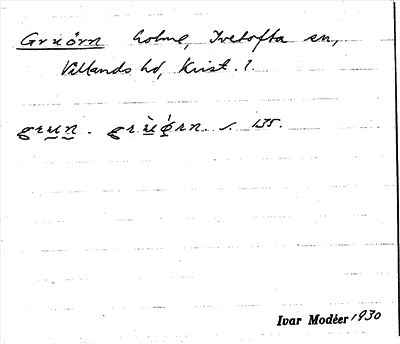 Gruörn holme, Ivetofta sn,
Villands hd, Krist. l.
grun. grùö́rn. s. 135.
Ivar Modéer 1930